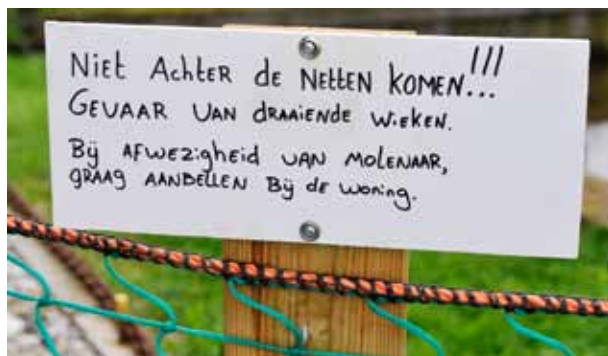 Niet Achter de Netten komen...!!!
Gevaar van draaiende wieken.
Bij afwezigheid van molenaar,
graag aanbellen bij de woning.